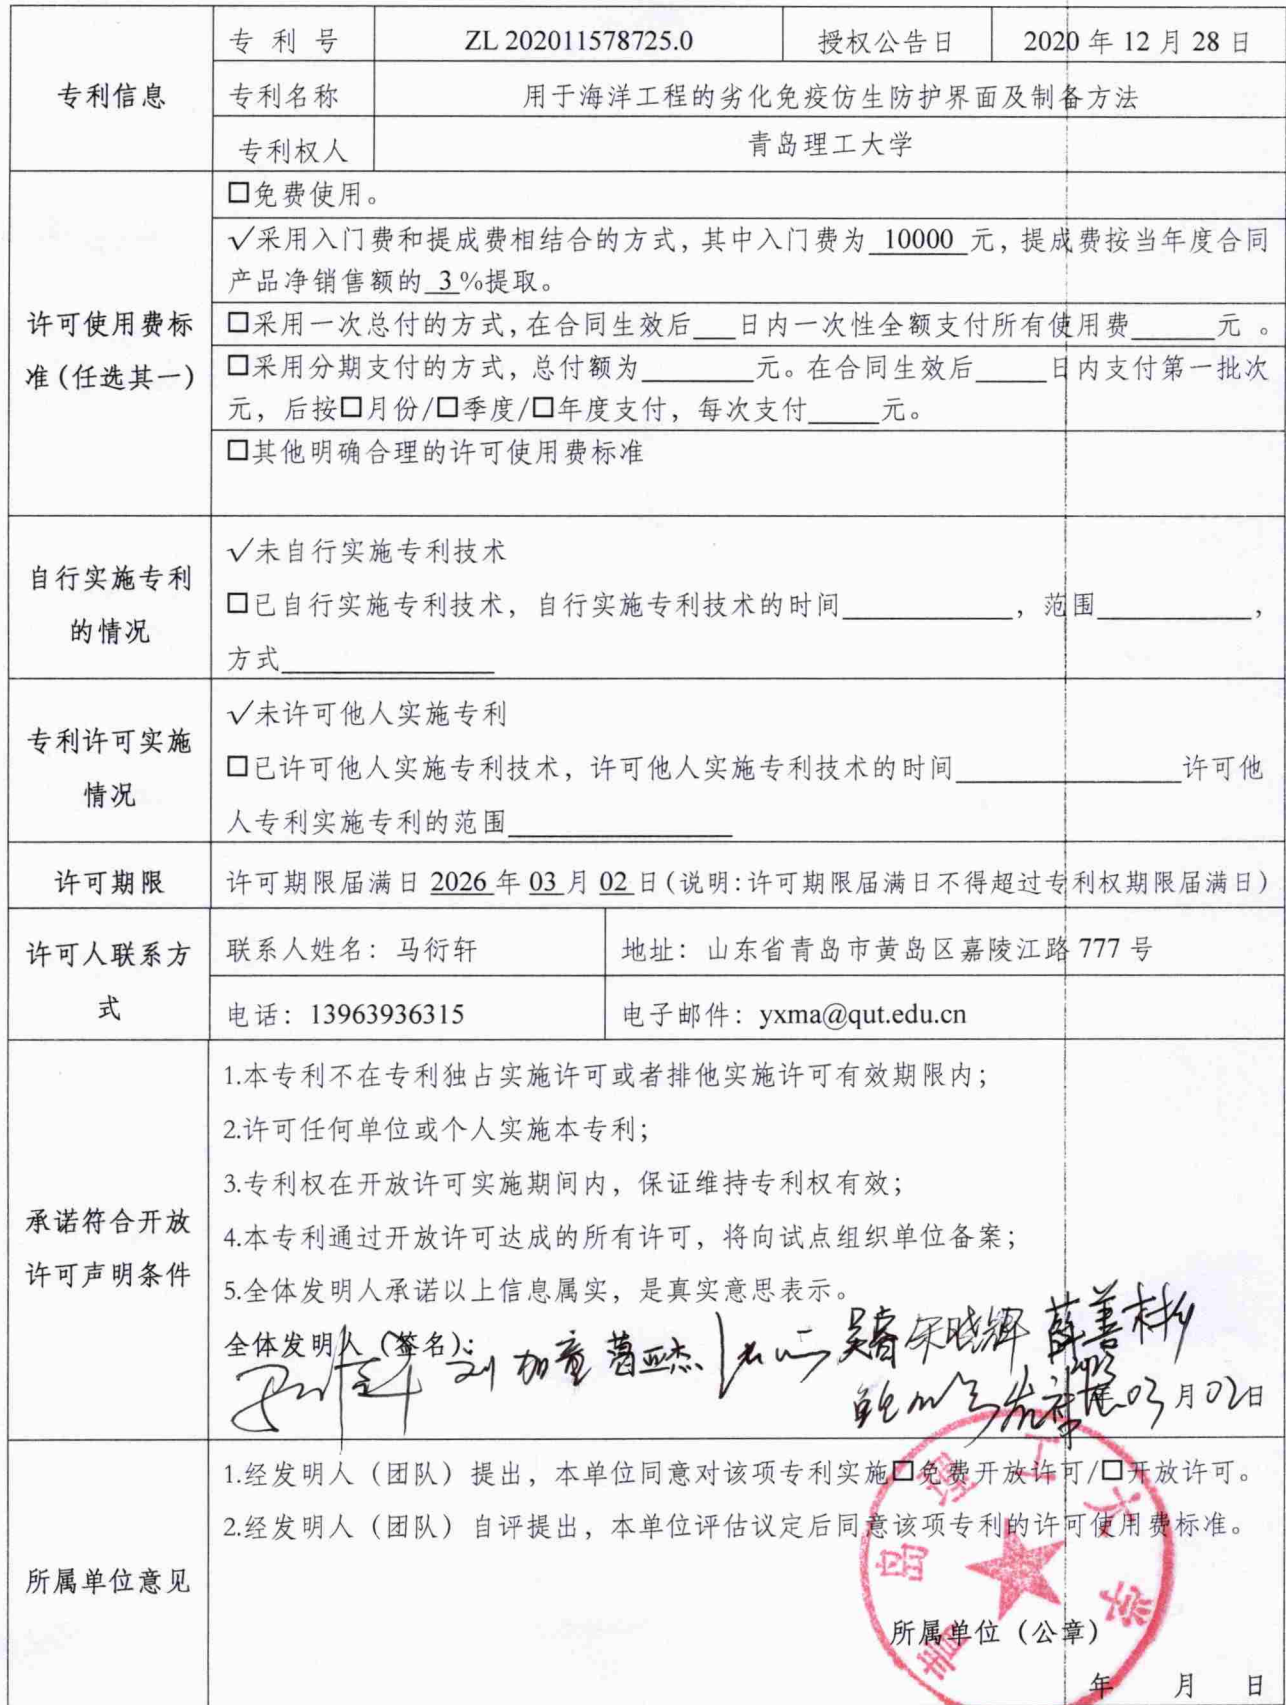 专利信息
专 利 号 ZL 202011578725.0 授权公告日 2020 年 12 月 28 日
专利名称 用于海洋工程的劣化免疫仿生防护界面及制备方法
专利权人 青岛理工大学
许可使用费标准(任选其一)
□免费使用。
√采用入门费和提成费相结合的方式，其中入门费为 10000 元，提成费按当年度合同
产品净销售额的 3 %提取。
□采用一次总付的方式，在合同生效后___日内一次性全额支付所有使用费______元 。
□采用分期支付的方式，总付额为________元。在合同生效后_____日内支付第一批次
元，后按□月份/□季度/□年度支付，每次支付_____元。
□其他明确合理的许可使用费标准
自行实施专利的情况
√未自行实施专利技术
□已自行实施专利技术，自行实施专利技术的时间____________，范围___________，
方式_______________
专利许可实施情况
√未许可他人实施专利
□已许可他人实施专利技术，许可他人实施专利技术的时间________________许可他
人专利实施专利的范围________________
许可期限 许可期限届满日 2026 年 03 月 02 日(说明:许可期限届满日不得超过专利权期限届满日)
许可人联系方式
联系人姓名：马衍轩 地址：山东省青岛市黄岛区嘉陵江路 777 号
电话：13963936315 电子邮件：yxma@qut.edu.cn
承诺符合开放许可声明条件
1.本专利不在专利独占实施许可或者排他实施许可有效期限内；
2.许可任何单位或个人实施本专利；
3.专利权在开放许可实施期间内，保证维持专利权有效；
4.本专利通过开放许可达成的所有许可，将向试点组织单位备案；
5.全体发明人承诺以上信息属实，是真实意思表示。
全体发明人（签名）：
刘加童 葛亚杰 吴睿 宋晓辉 薛善彬
年 03 月 02 日
所属单位意见
1.经发明人（团队）提出，本单位同意对该项专利实施□免费开放许可/□开放许可。
2.经发明人（团队）自评提出，本单位评估议定后同意该项专利的许可使用费标准。
青岛理工大学
所属单位（公章）
年 月 日